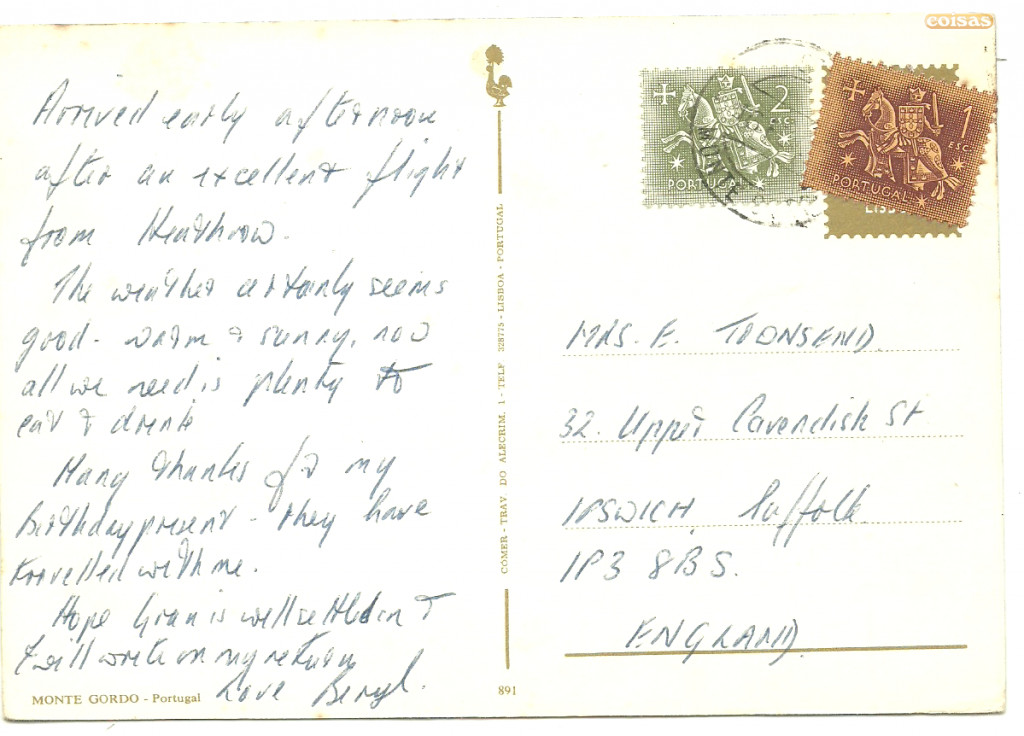 coisas
Arrived early afternoon
after an excellent flight
from Heathrow.
The weather certainly seems
good - warm & sunny, now
all we need is plenty to
eat & drink
Many thanks for my
birthday present - they have
travelled with me.
Hope Gran is well settled in &
I will write on my return
Love Beryl.
MONTE GORDO - Portugal
COMER - TRAV. DO ALECRIM, 1 - TELF. 328775 - LISBOA - PORTUGAL
891
2
ESC.
PORTUGAL
MONTE
1
ESC.
PORTUGAL
MRS. E. TOWNSEND
32. Upper Cavendish St
IPSWICH Suffolk
IP3 8BS.
ENGLAND.